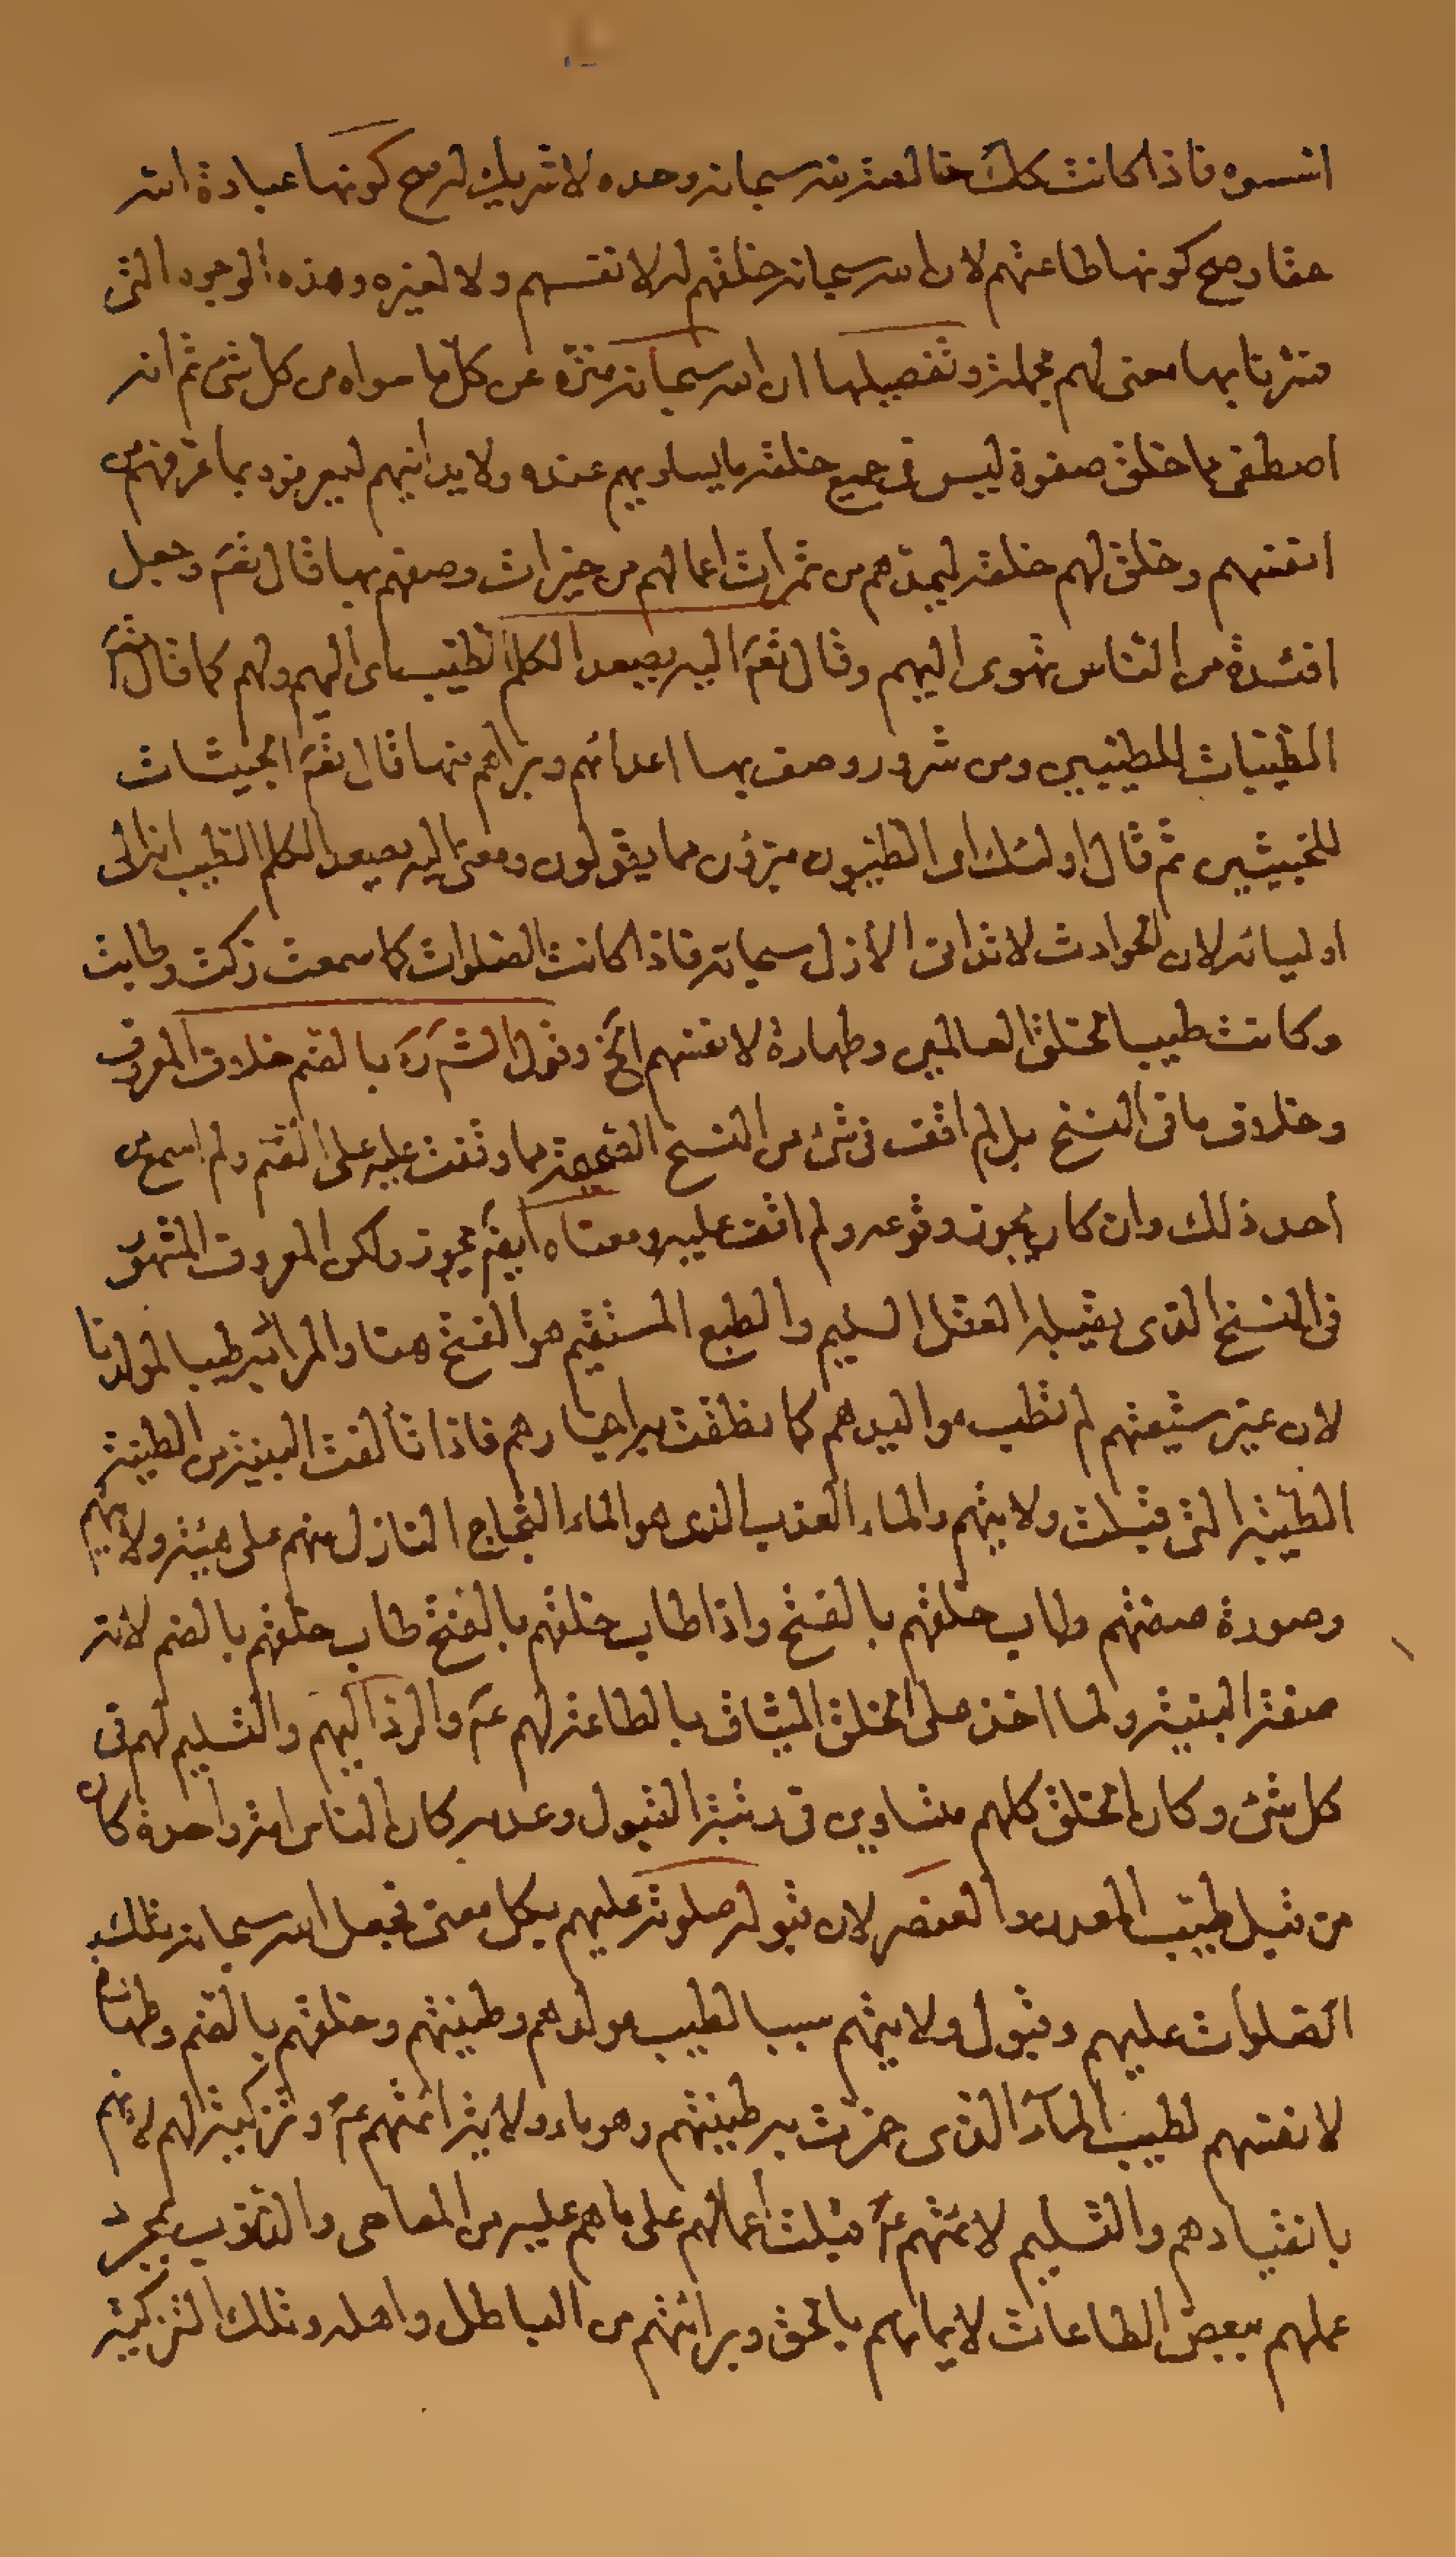 اسسوه فاذا كانت كك خالصة لله سبحانه وحده لا شريك له صح كونها عبادة الله
حقا وصح كونها طاعتهم لان الله سبحانه خلقهم له لا نفسهم ولا لغيره وهذه الوجوه التى
فسرنا بها معنى لهم مجملة وتفصيلها ان الله سبحانه منزّه عن كل ما سواه من كل شئ ثم انه
اصطفى مما خلق صفوة ليس فى جميع خلقه ما يساويهم عنده ولا يدانيهم ليعرفوه بما عرفهم من
انفسهم وخلق لهم خلقه ليمدّهم من ثمرات اعمالهم من خيرات وصفهم بها قال تعم وجعل
افئدة من الناس تهوى اليهم وقال تعم اليه يصعد الكلم الطيب اى اليهم ولهم كما قال تعم
الطيبات للطيبين ومن شرور وصف بها اعدائهم وبراهم منها قال تعم الخبيثات
للخبيثين ثم قال اولئك اى الطيبون مبرؤن مما يقولون ومعنى اليه يصعد الكلم الطيب انه الى
اوليائه لان الحوادث لا تدانى الازل سبحانه فاذا كانت الصلوات كما سمعت زكت وطابت
وكانت طيبا لخلق العالمين وطهارة لانفسهم الخ وقول الش ره بالضم خلاف المعروف
وخلاف ما فى النسخ بل لم اقف فى شئ من النسخ الصحيحة مما وقفت عليه على الضم ولم اسمع من
احد ذلك وان كان يجوز وقوعه ولم اقف عليه ومعناه ايضم يجوز ولكن المعروف المشهور
فى النسخ الذى يقبله العقل السليم والطبع المستقيم هو الفتح هنا والمراد به طيبا لمولدنا
لان غير شيعتهم لم تطب مواليدهم كما نطقت به اخبارهم فاذا تألفت البنية من الطينة
الطيبة التى قبلت ولايتهم والماء العذب الذى هو الماء الثجاج النازل منهم على هيئة ولايتهم
وصورة صفتهم وطاب خلقهم بالفتح واذا طاب خلقهم بالفتح طاب خلقهم بالضم لانه
صفة البنية ولما اخذ على الخلق الميثاق بالطاعة لهم عم والرد اليهم والتسليم لهم فى
كل شئ وكان الخلق كلهم متساوين فى رتبة القبول وعدمه كان الناس امة واحدة كان
من قبل طيب المعدن والعنصر لان قبوله صلوته عليهم بكل معنى فجعل الله سبحانه تلك
الصلوات عليهم وقبول ولايتهم سببا لطيب مولدهم وطينتهم وخلقهم بالضم وطهارة
لانفسهم لطيب الماء الذى جرت به طينتهم وهو ماء ولاية ائمتهم عم وتزكية لهم لانهم
بانقيادهم والتسليم لائمتهم عم قبلت اعمالهم على ما هم عليه من المعاصى والذنوب بمجرد
عملهم ببعض الطاعات لايمانهم بالحق وبرائتهم من الباطل واهله وتلك التزكية